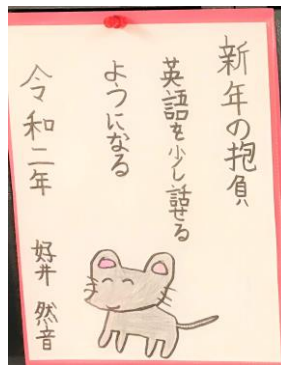 新年の抱負
英語を少し話せる
ようになる
令和二年 好井 然音